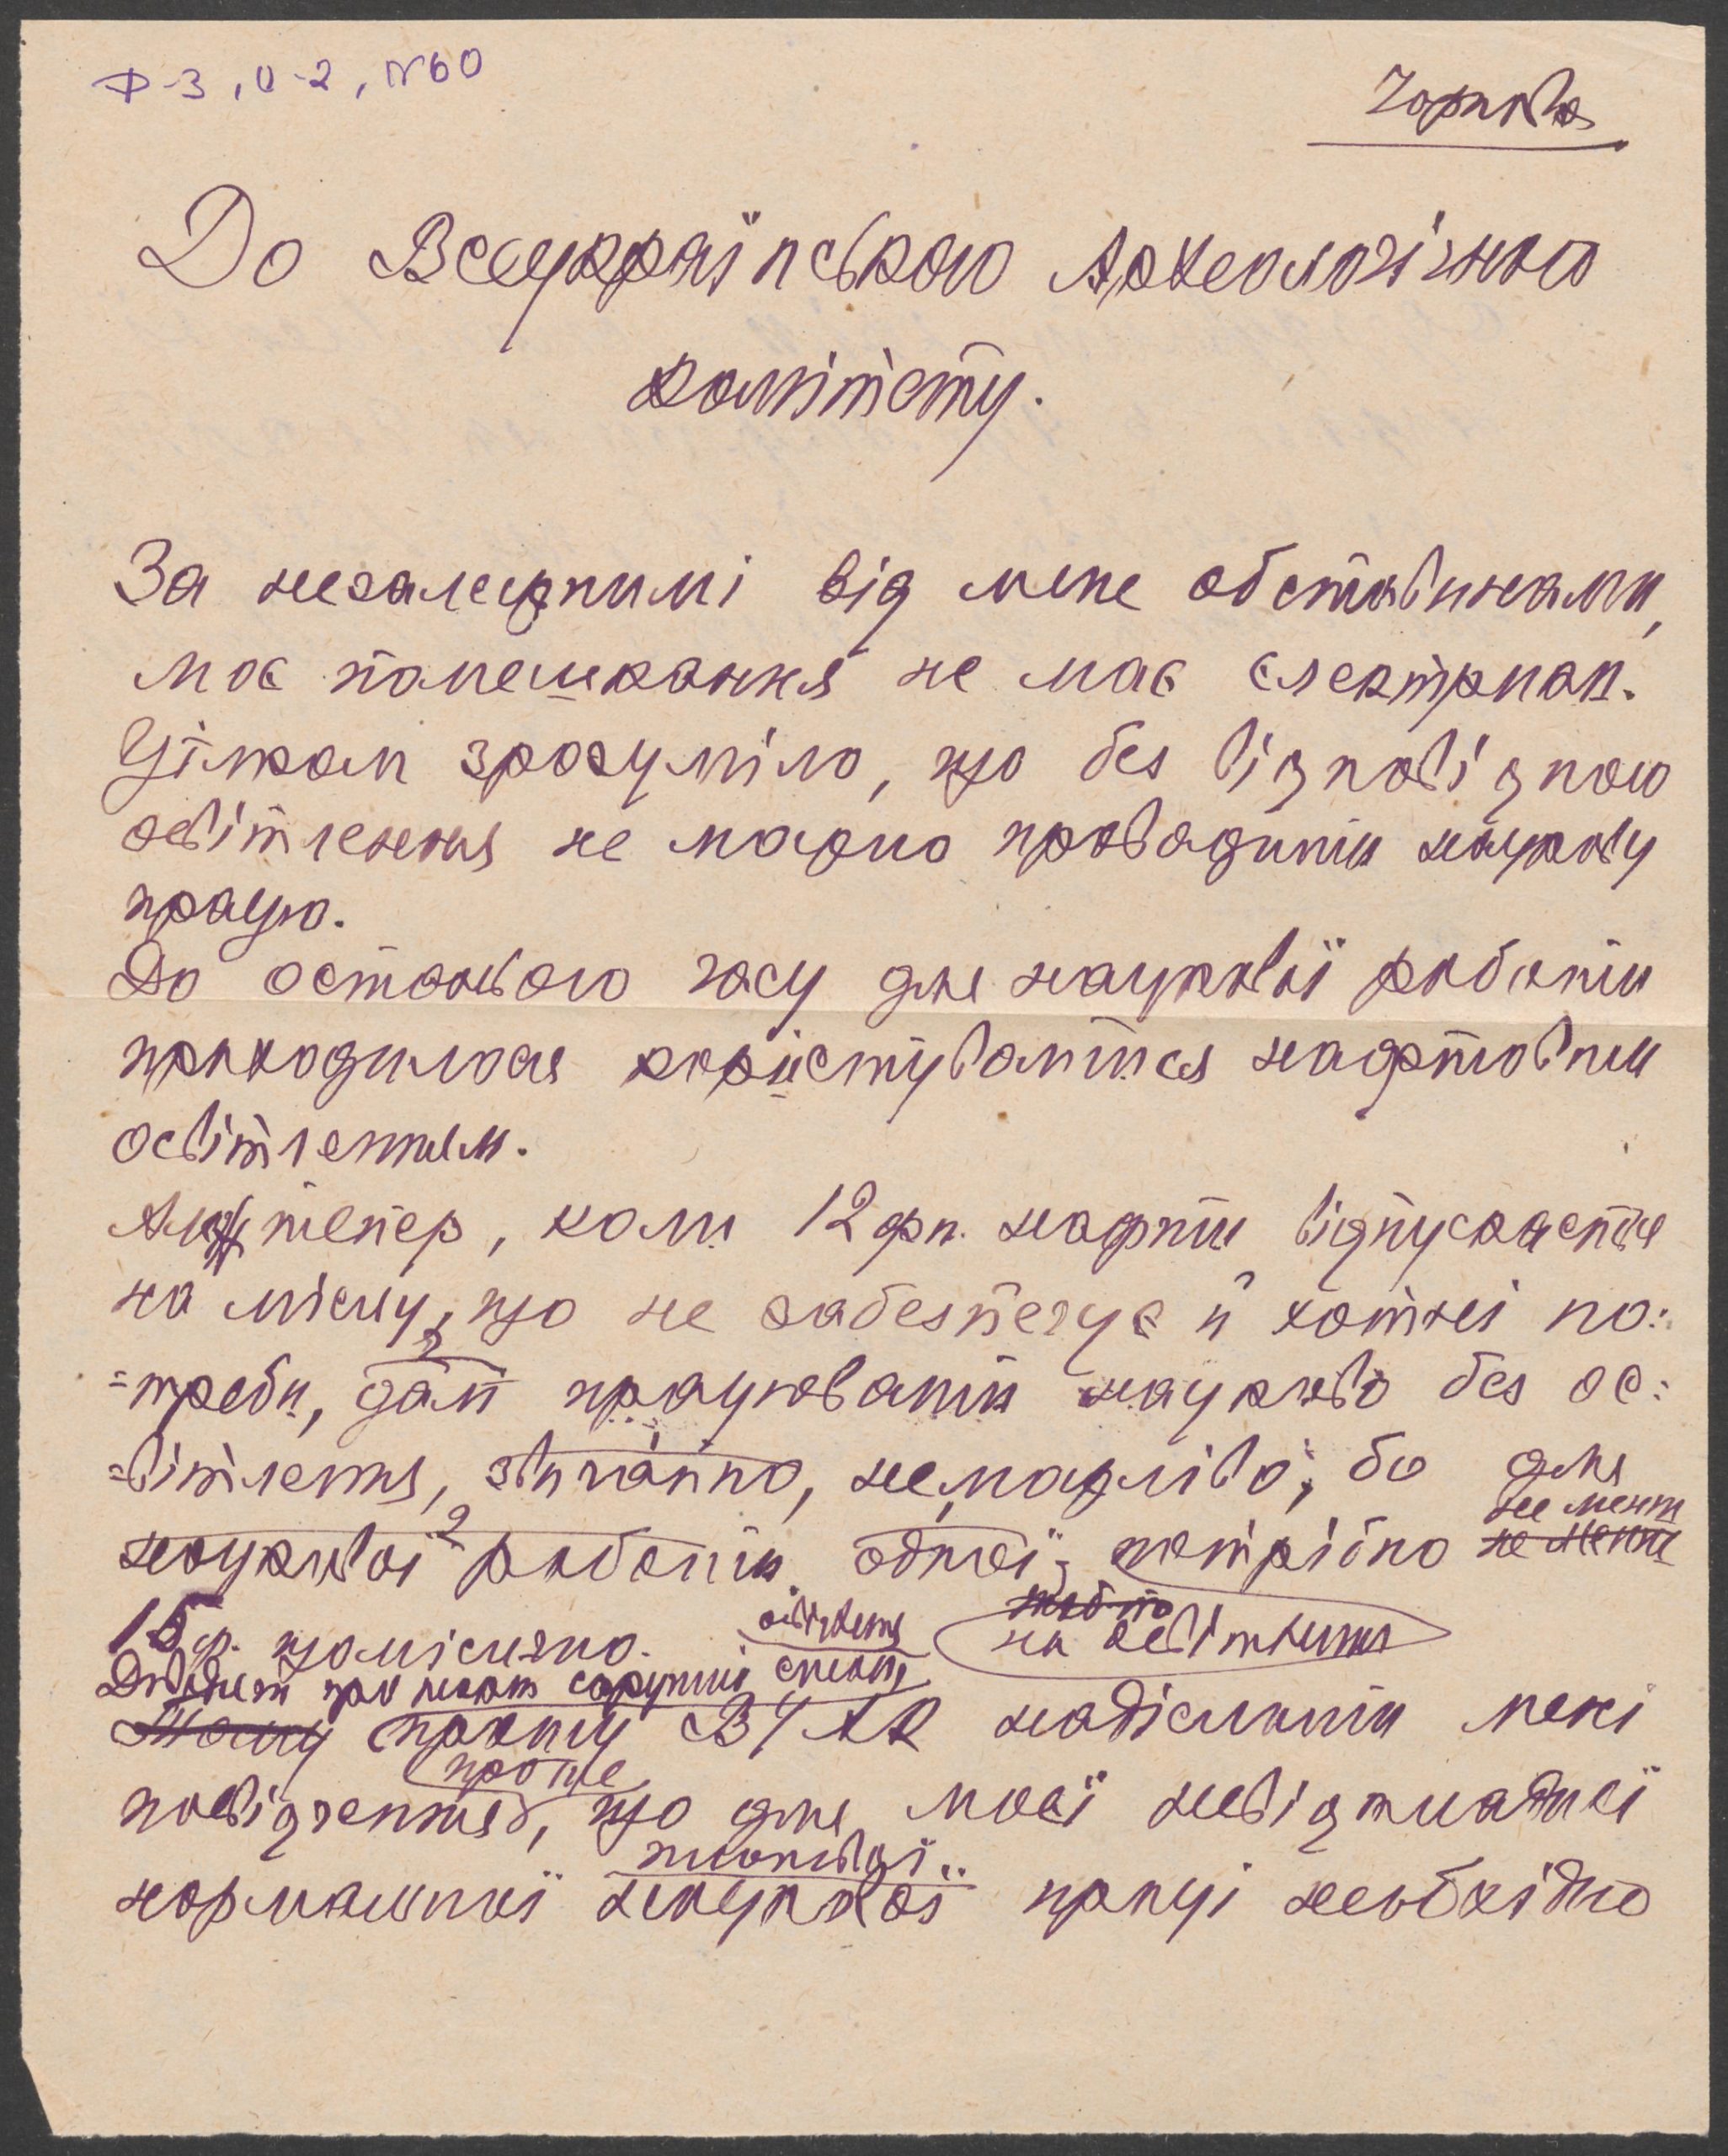 Ф-3, О-2, №60
Чернетка
До Всеукраїнського Археологічного
комітету.
За незалежними від мене обставинами,
моє помешкання не має електрики.
Цілком зрозуміло, що без відповідного
освітлення не можно провадити наукову
працю.
До останнього часу для наукової роботи
приходилося користуватися нафтовим
освітленням.
Але тепер, коли 12 фн. нафти відпускається
на місяць, що не забезпечує й хатнєі по:
=треби, далі працювати науково без ос:
=вітлення, звичайно, неможливо, бо для
не менш
наукової роботи одної, потрібно не менш
15 ф. щомісячно. на освітлення
освітлення
Довідуєм про
Тому прошу ВУАК надіслати мені
про те
посвідчення, що для моєї невідкладної
нормальної наукової праці необхідно